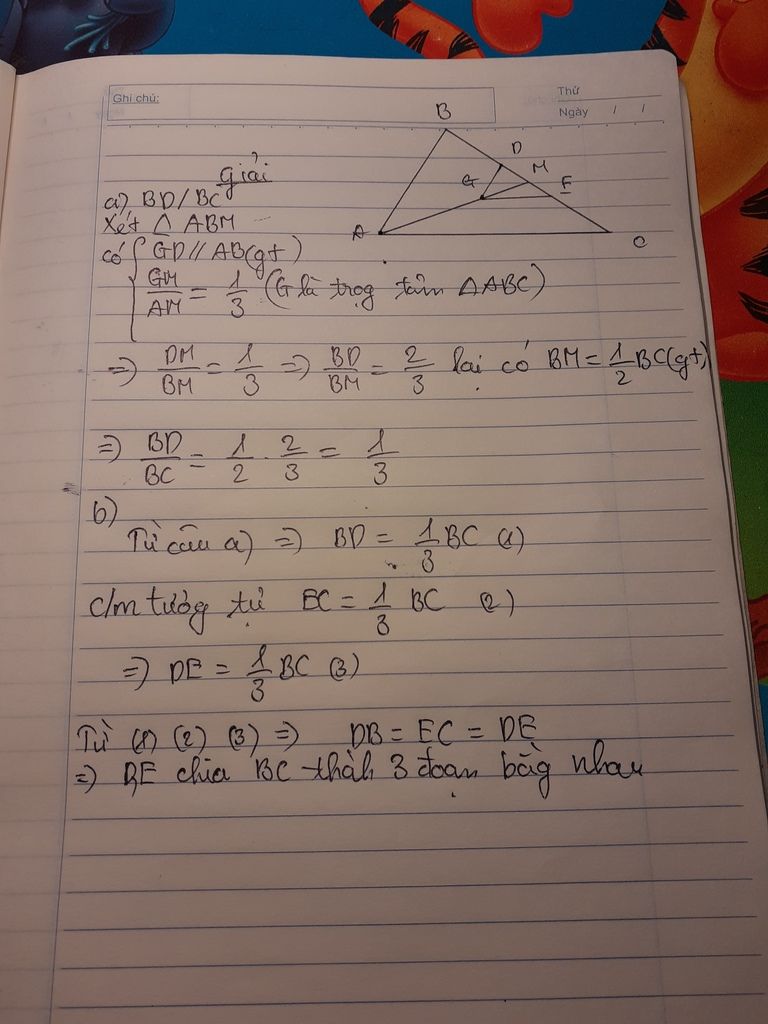 Ghi chú:
Thứ
Ngày / /
B
D
M
E
G
A
C
Giải
a) BD/BC
Xét △ ABM
có { GD // AB (gt)
GM/AM = 1/3 (G là trọg tâm △ABC)
=> DM/BM = 1/3 => BD/BM = 2/3 lại có BM = 1/2 BC (gt)
=> BD/BC = 1/2 . 2/3 = 1/3
b)
Từ câu a) => BD = 1/3 BC (1)
c/m tườg tự EC = 1/3 BC (2)
=> DE = 1/3 BC (3)
Từ (1) (2) (3) => DB = EC = DE
=> D,E chia BC thàh 3 đoạn bằg nhau